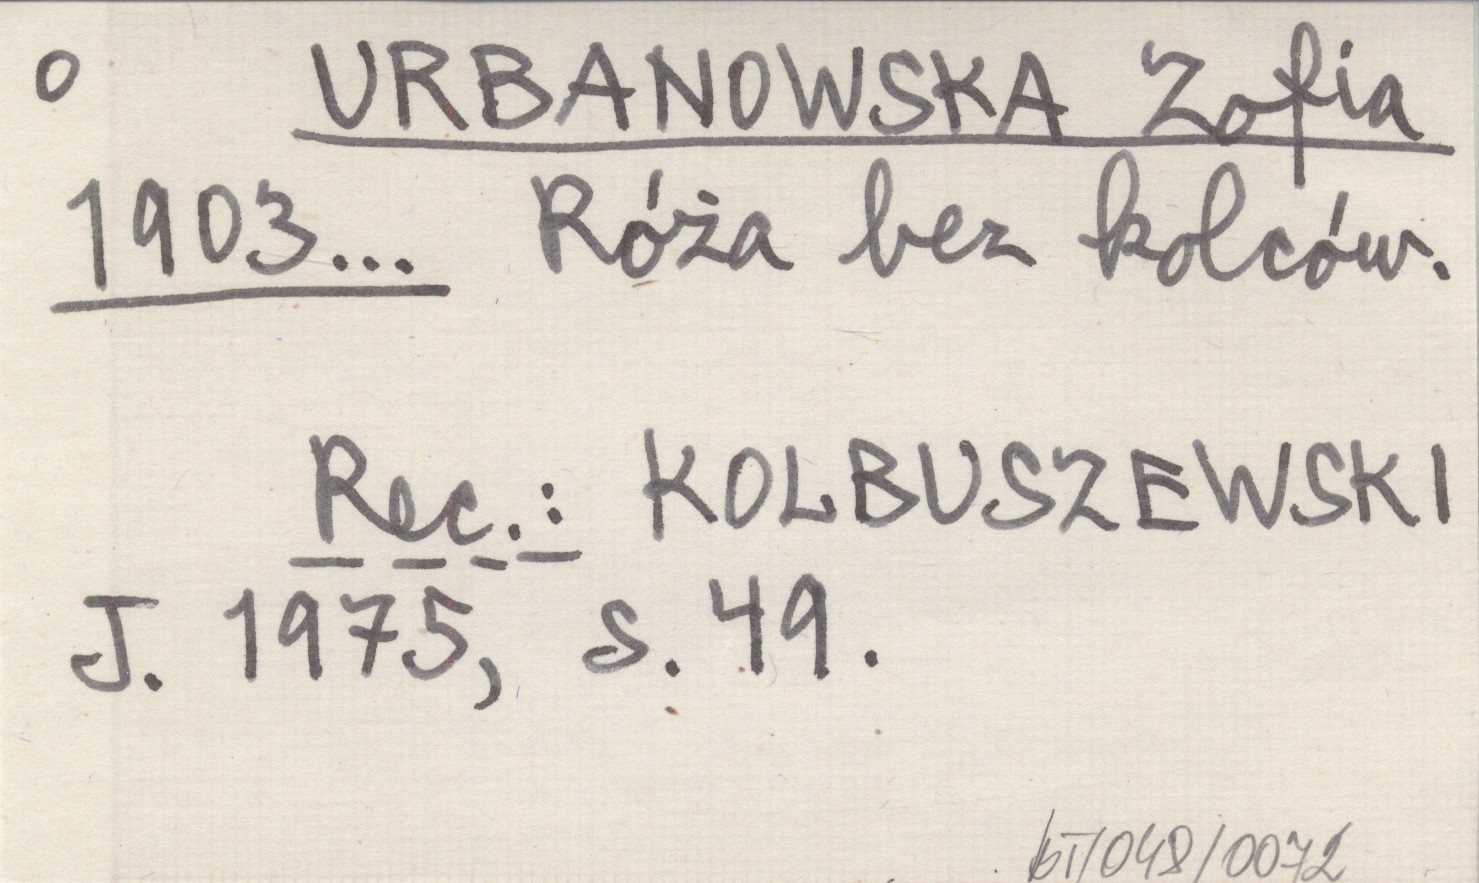 o URBANOWSKA Zofia
1903... Róża bez kolców.
Rec.: KOLBUSZEWSKI
J. 1975, s. 49.
bT/048/0072